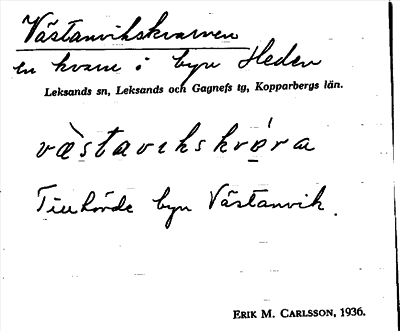 Västanvikskvarnen
en kvarn i byn Heden
Leksands sn, Leksands och Gagnefs tg, Kopparbergs län.
væ̀stavikskvǿ́ra
Tillhörde byn Västanvik.
ERIK M. CARLSSON, 1936.